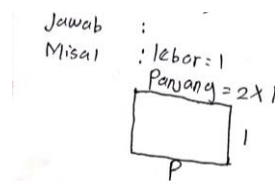 Jawab :
Misal : lebar = l
Panjang = 2 x l
l
P